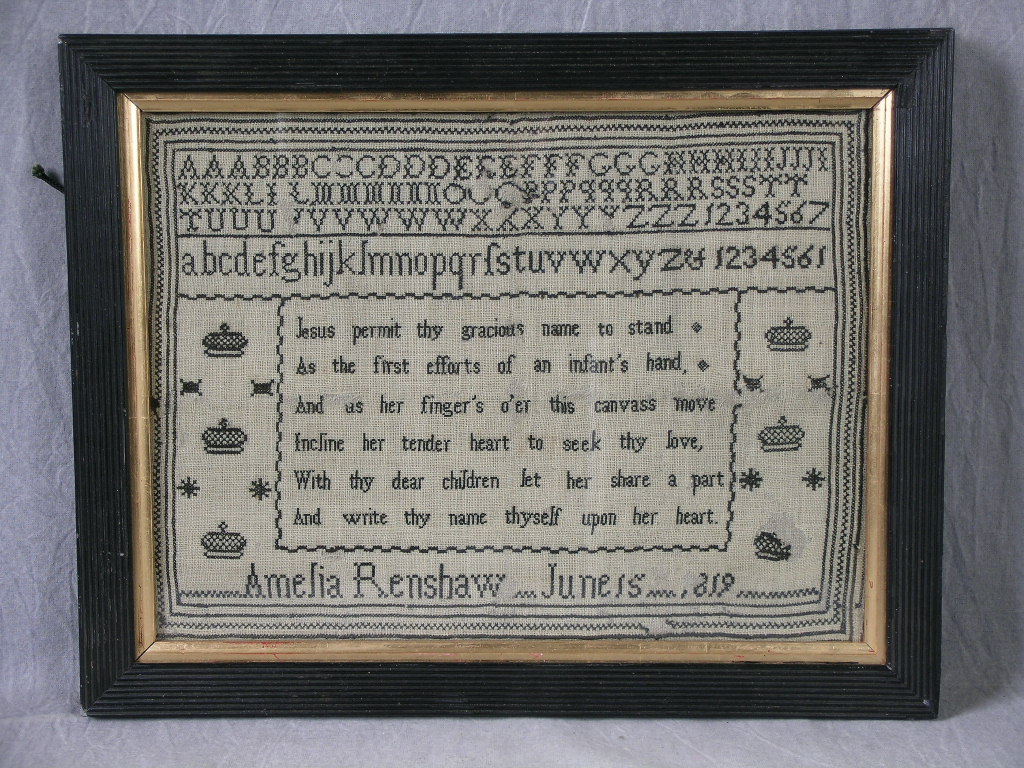 AAABBBCCCDDDEEEFFFGGGHHHIIIJJJ
KKKLLLMMMNNNOOOPPPQQQRRRSSSTT
TUUU VVVWWWXXXYYYZZZ1234567
abcdefghijklmnopqrſstuvwxyz& 1234561
Jesus permit thy gracious name to stand
As the first efforts of an infant's hand,
And as her finger's o'er this canvass move
Incline her tender heart to seek thy love,
With thy dear children let her share a part
And write thy name thyself upon her heart.
Amelia Renshaw June 15 1819